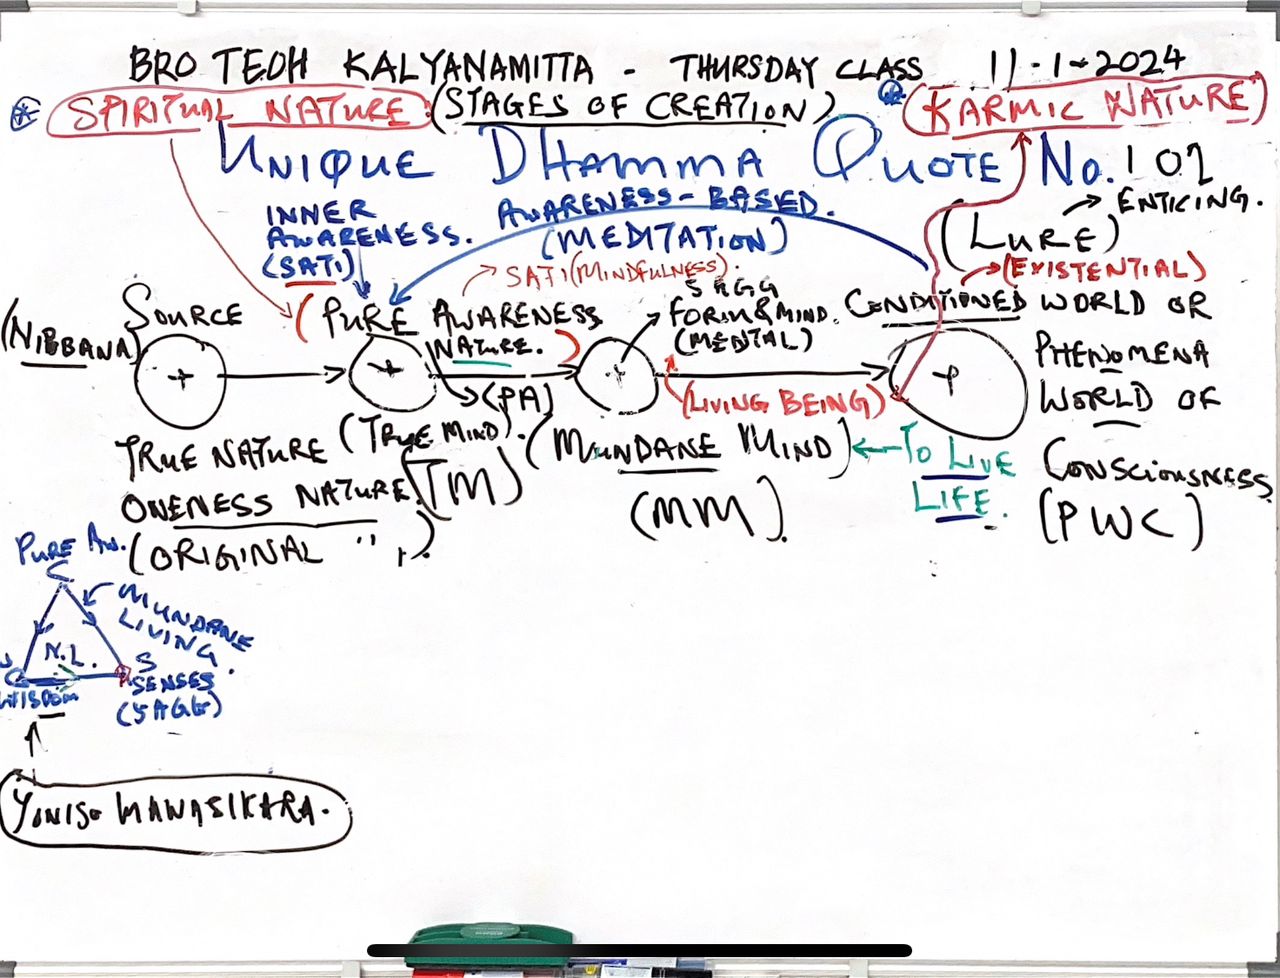 BRO TEOH KALYANAMITTA - THURSDAY CLASS 11-1-2024
SPIRITUAL NATURE (STAGES OF CREATION) KARMIC NATURE
UNIQUE DHAMMA QUOTE No. 102
INNER AWARENESS. (SATI)
AWARENESS-BASED. (MEDITATION)
(LURE) → ENTICING.
(EXISTENTIAL)
SATI (MINDFULNESS).
(NIBBANA) SOURCE
(PURE AWARENESS NATURE.)
(PA)
5AGG FORM & MIND. (MENTAL)
CONDITIONED WORLD OR
PHENOMENA
WORLD OF
CONSCIOUSNESS
(PWC)
(LIVING BEING)
TRUE NATURE
ONENESS NATURE.
(ORIGINAL " ).
(TRUE MIND).
(TM)
(MUNDANE MIND) ← TO LIVE LIFE.
(MM).
PURE AW.
MUNDANE LIVING.
N.L.
S
SENSES
(5AGG)
WISDOM
YONISO MANASIKARA.